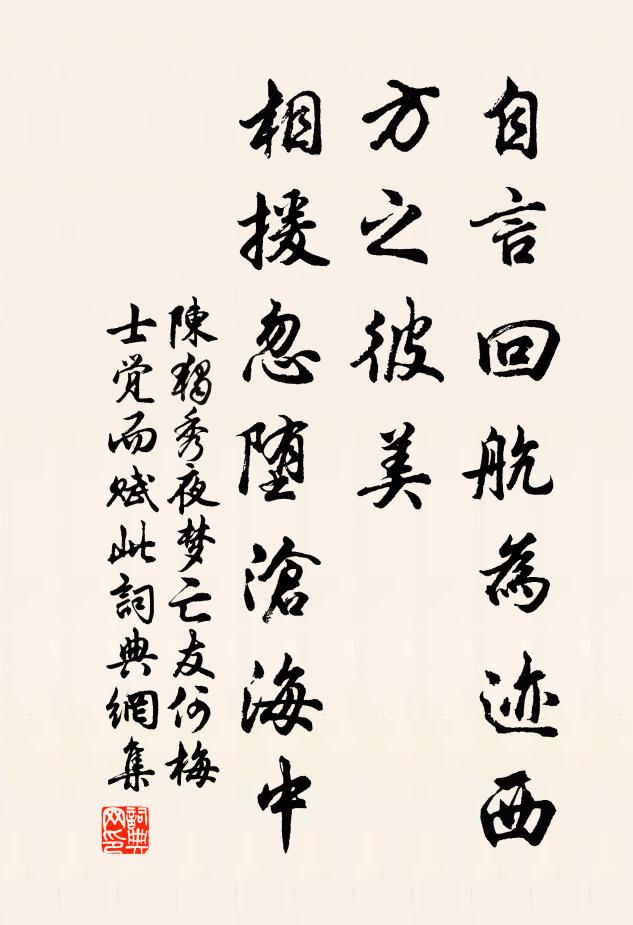 自言回航為迹西
方之彼美
相援忽堕滄海中
陳獨秀夜梦亡友何梅
士覚而赋此詞典網集
詞典
网印